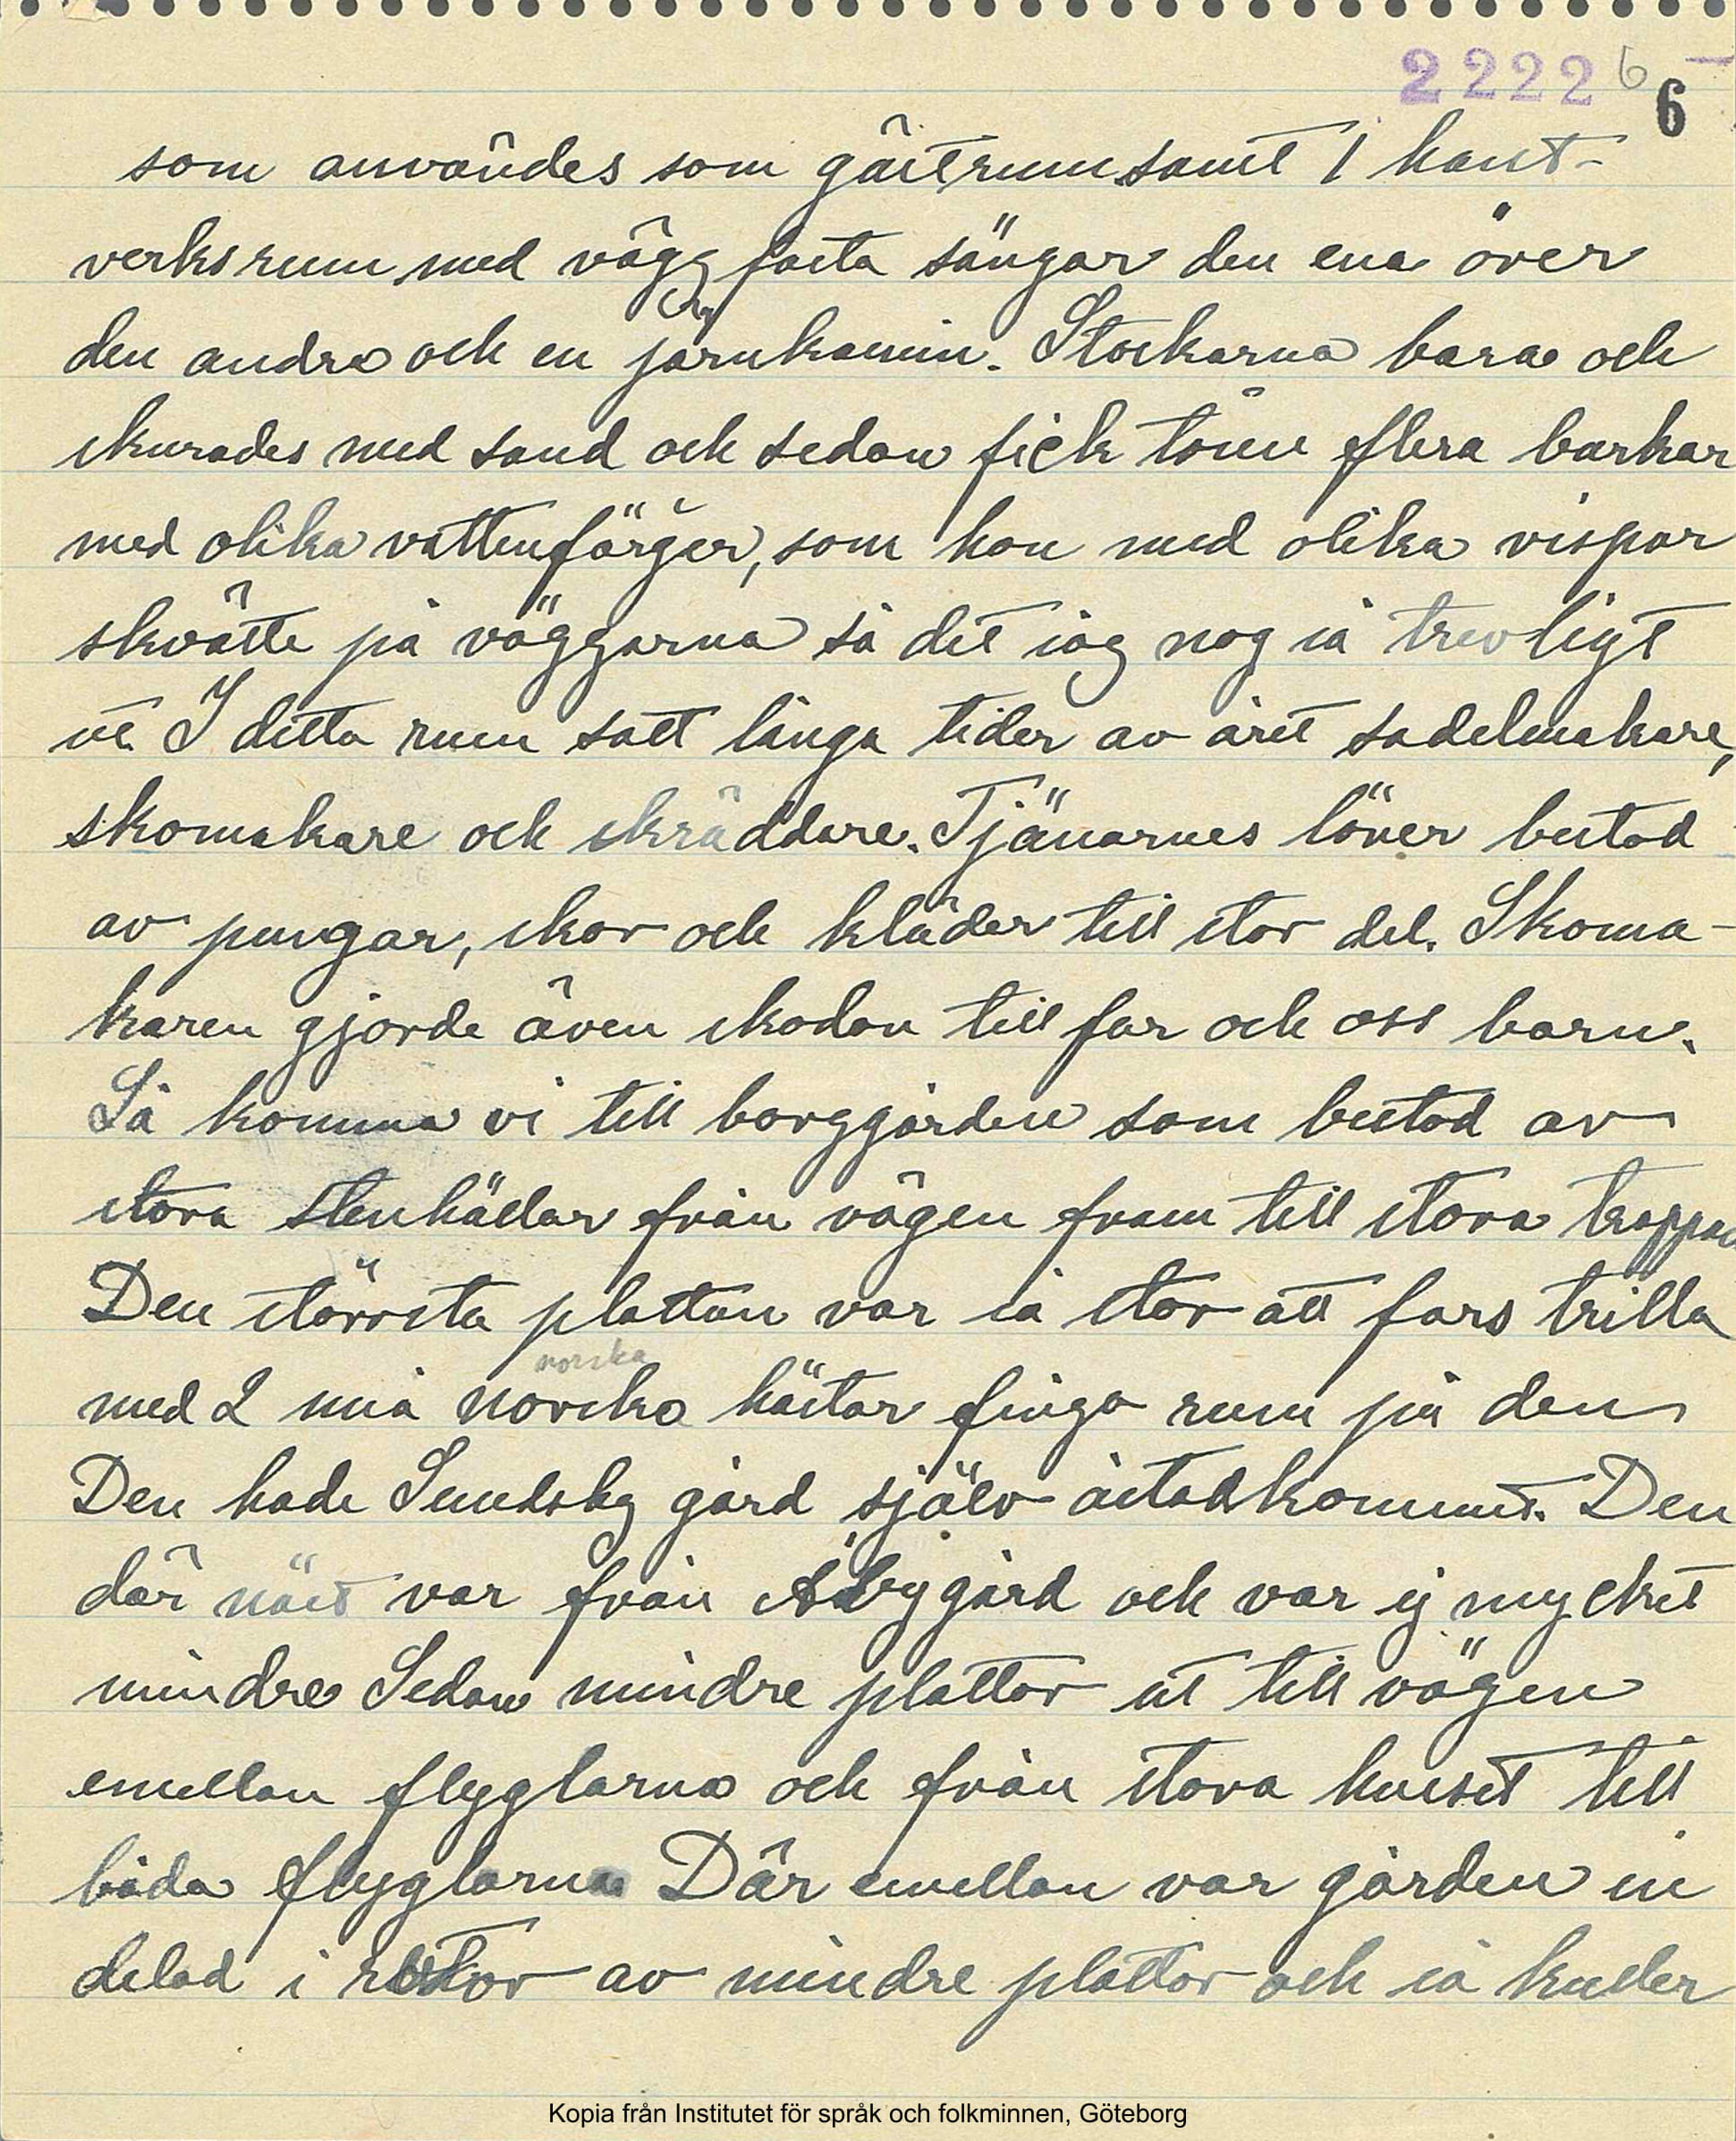 2222 6
6
som användes som gästrum samt 1 hant-
verksrum med väggfasta sängar den ena över
den andra och en järnkamin. Stockarna bara och
skurades med sand och sedan fick tösen flera barkar
med olika vattenfärger, som hon med olika vispar
skvätte på väggarna så det såg nog så trevligt
ut. I detta rum satt långa tider av året sadelmakare,
skomakare och skräddare. Tjänarnes löner bestod
av pengar, skor och kläder till stor del. Skoma-
karen gjorde även skodon till far och oss barn.
Så komma vi till borggården som bestod av
stora stenhällar från vägen fram till stora trappan
Den största plattan var så stor att fars trilla
norska
med 2 små norska hästar finga rum på den
Den hade Sundsby gård själv åstadkommit. Den
där näst var från Åbygård och var ej mycket
mindre Sedan mindre plattor ut till vägen
emellan flyglarna och från stora huset till
båda flyglarna Där emellan var gården in
delad i rutor av mindre plattor och så kuller
Kopia från Institutet för språk och folkminnen, Göteborg